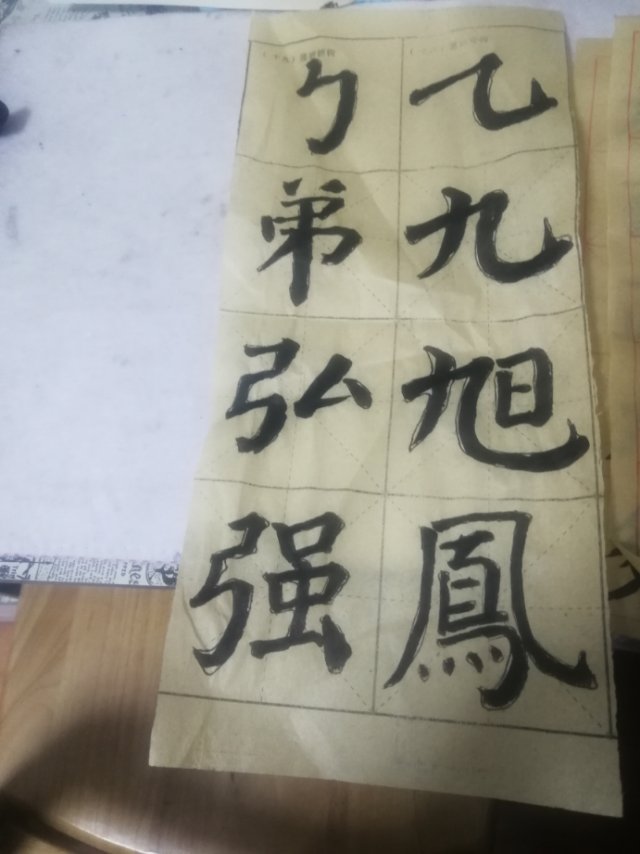 乙
九
旭
鳳
弟
弘
强